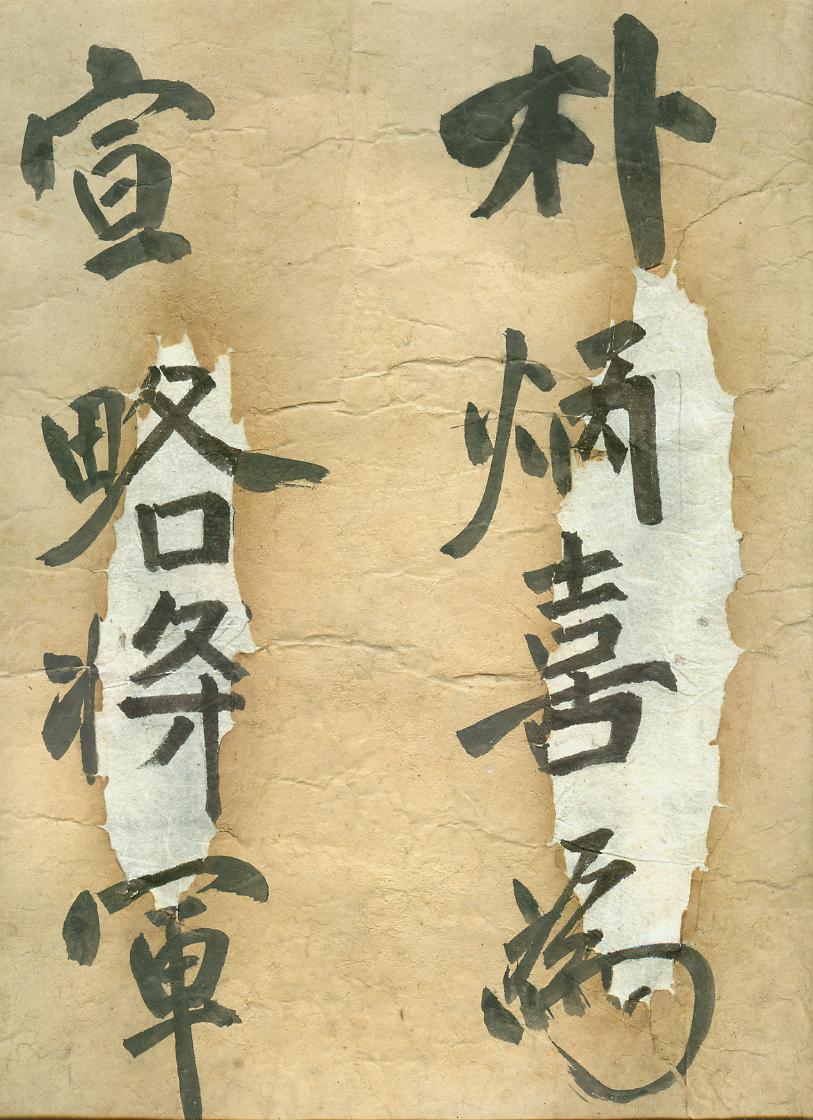 朴炳喜爲
宣略將軍